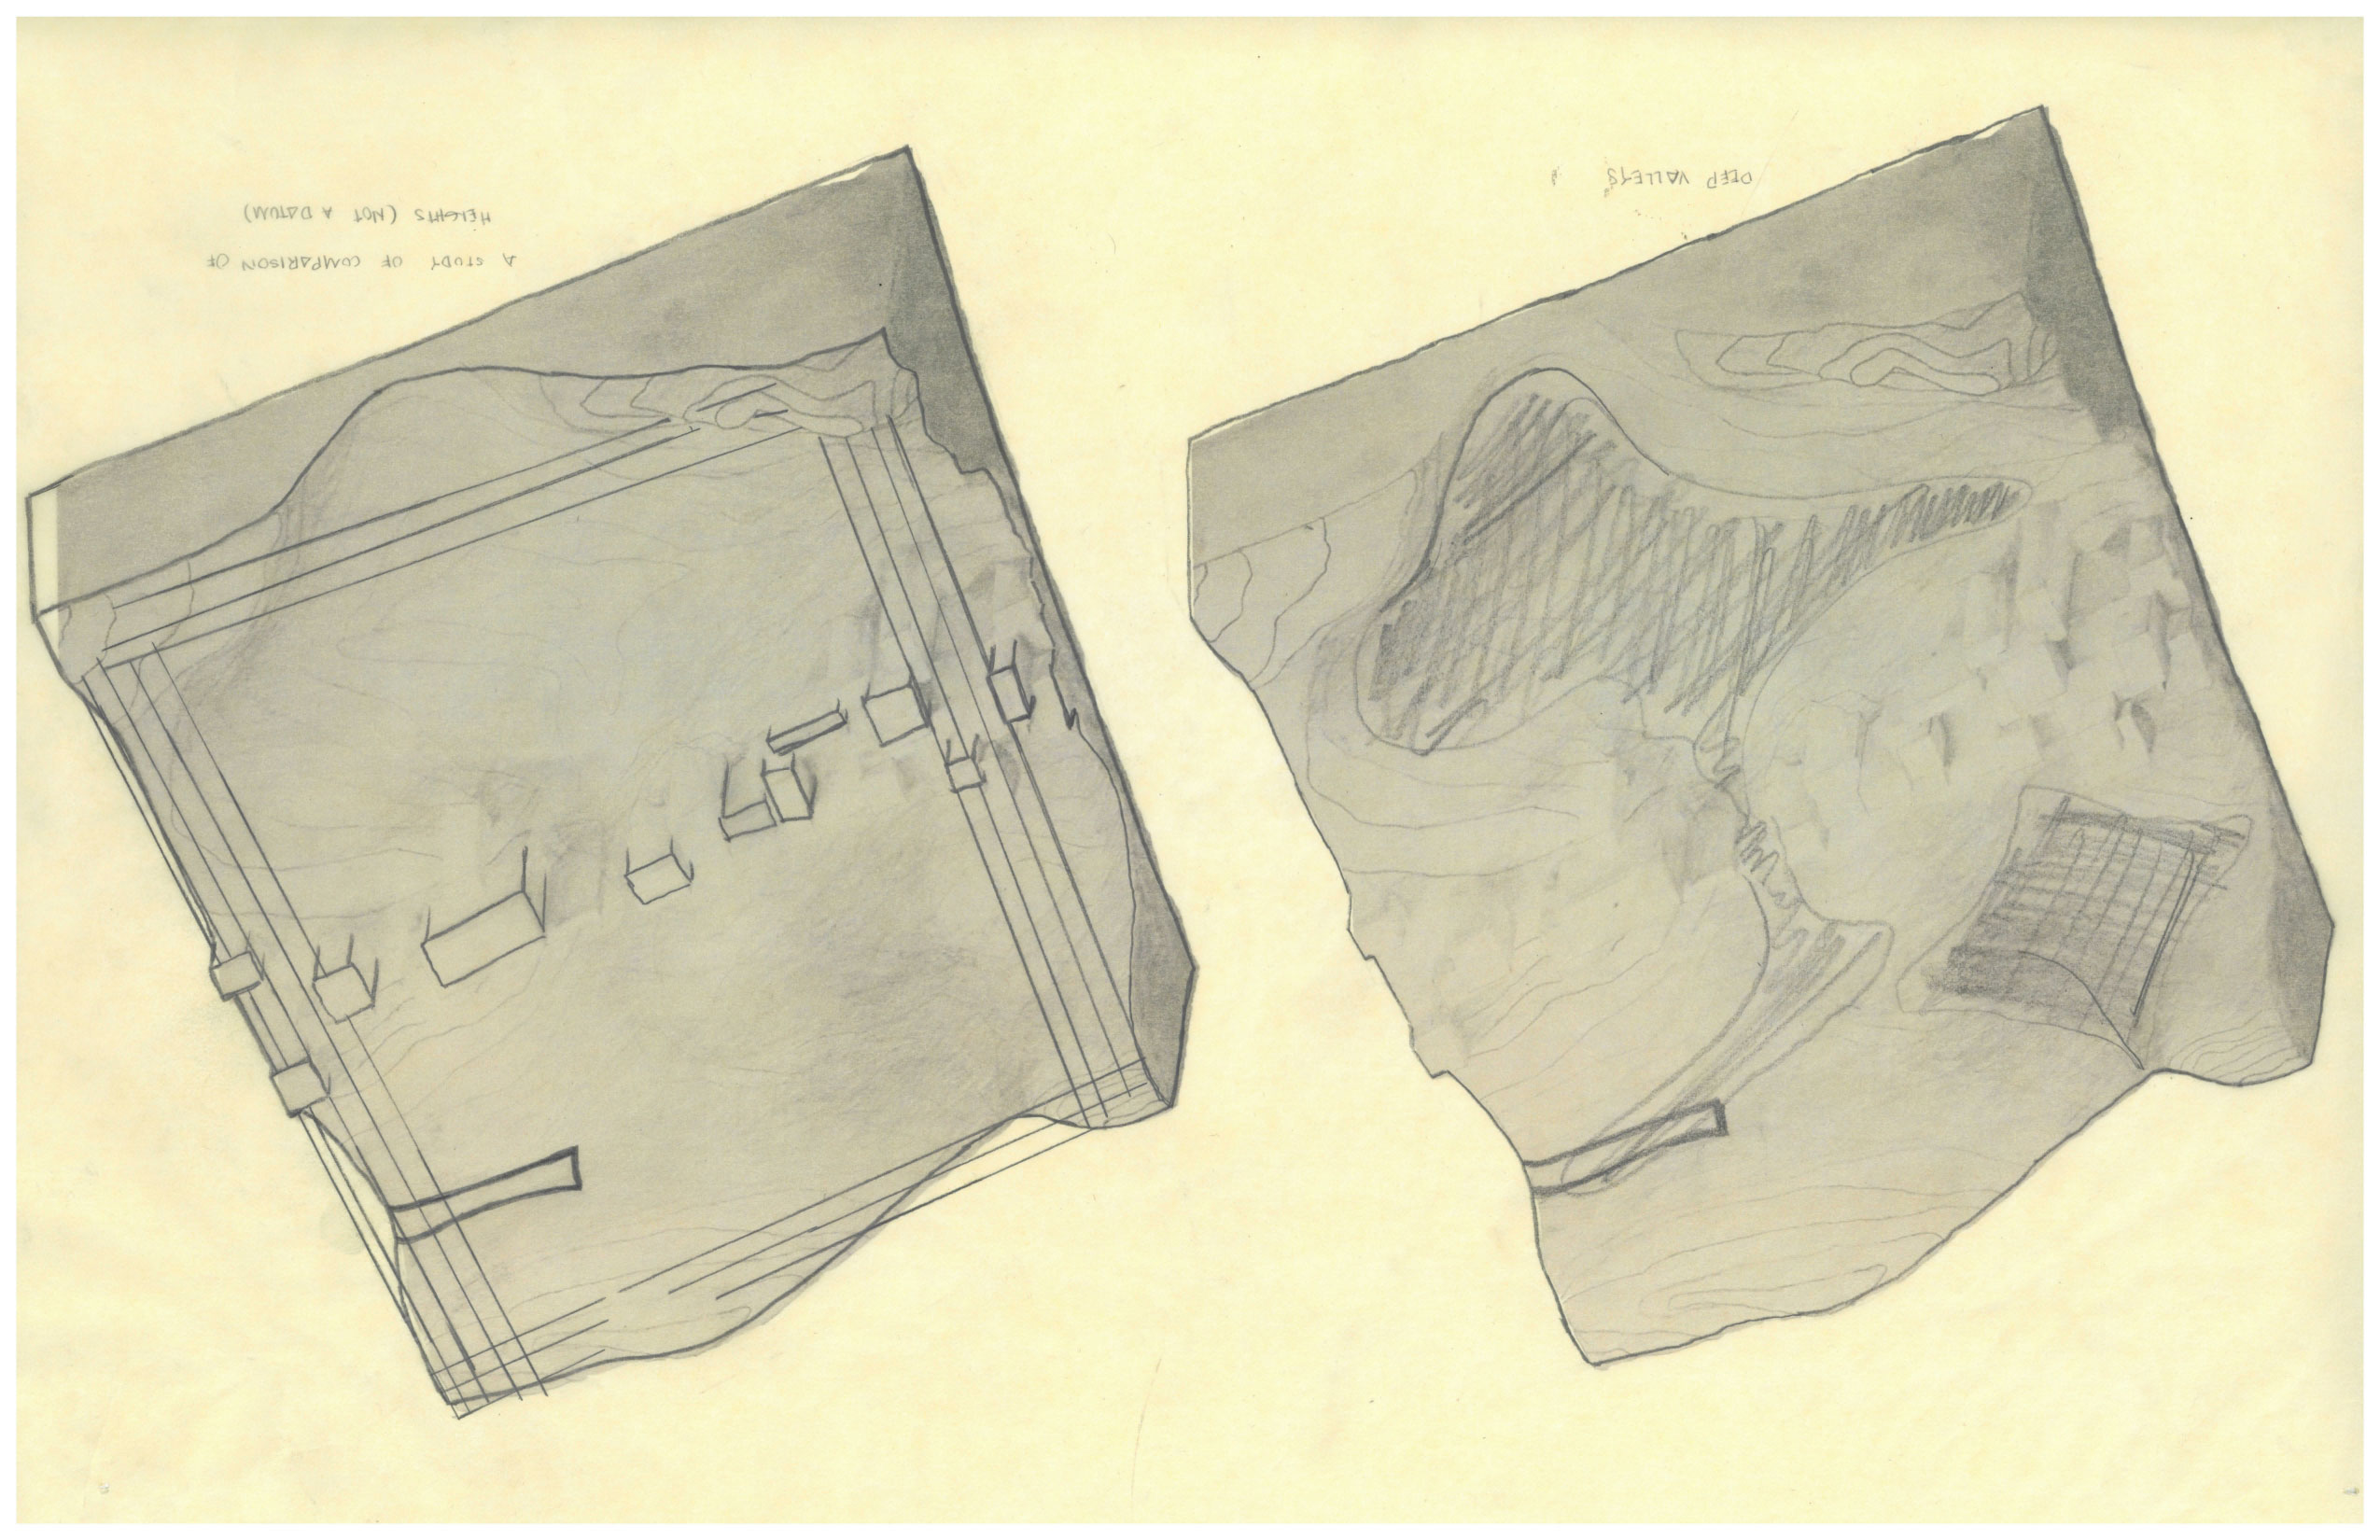 DEEP VALLEYS
A STUDY OF COMPARISON OF
HEIGHTS (NOT A DATUM)